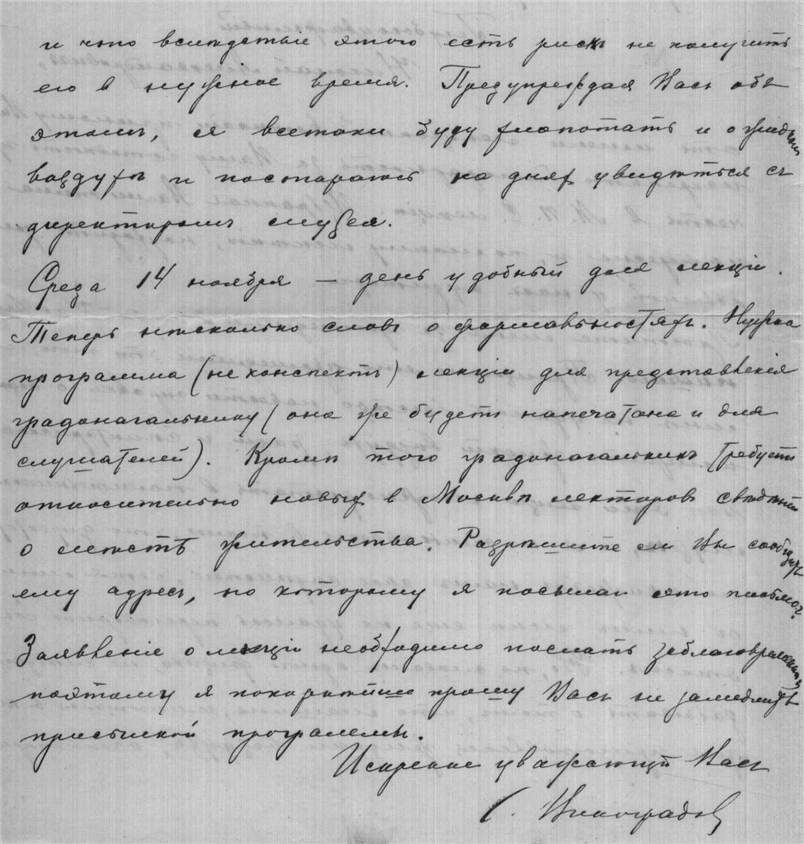 и что вслѣдствіе этого есть риск не получить
его в нужное время. Предупреждая Васъ объ
этомъ, я все таки буду хлопотать и о жидкомъ
воздухѣ и постараюсь на дняхъ увидѣться съ
директоромъ музея.
Среда 14 ноября — день удобный для лекціи.
Теперь нѣсколько словъ о формальностяхъ. Нужна
программа (не конспектъ) лекціи для представленія
градоначальнику (она же будетъ напечатана и для
слушателей). Кромѣ того градоначальникъ требуетъ
относительно новыхъ в Москвѣ лекторовъ свѣдѣній
о мѣстѣ жительства. Разрѣшите ли Вы сообщить
ему адресъ, по которому я посылаю это письмо?
Заявленіе о лекціи необходимо послать заблаговременно
поэтому я покорнѣйше прошу Васъ не замедлить
присылкой программы.
Искренне уважающій Васъ
С. Виноградов